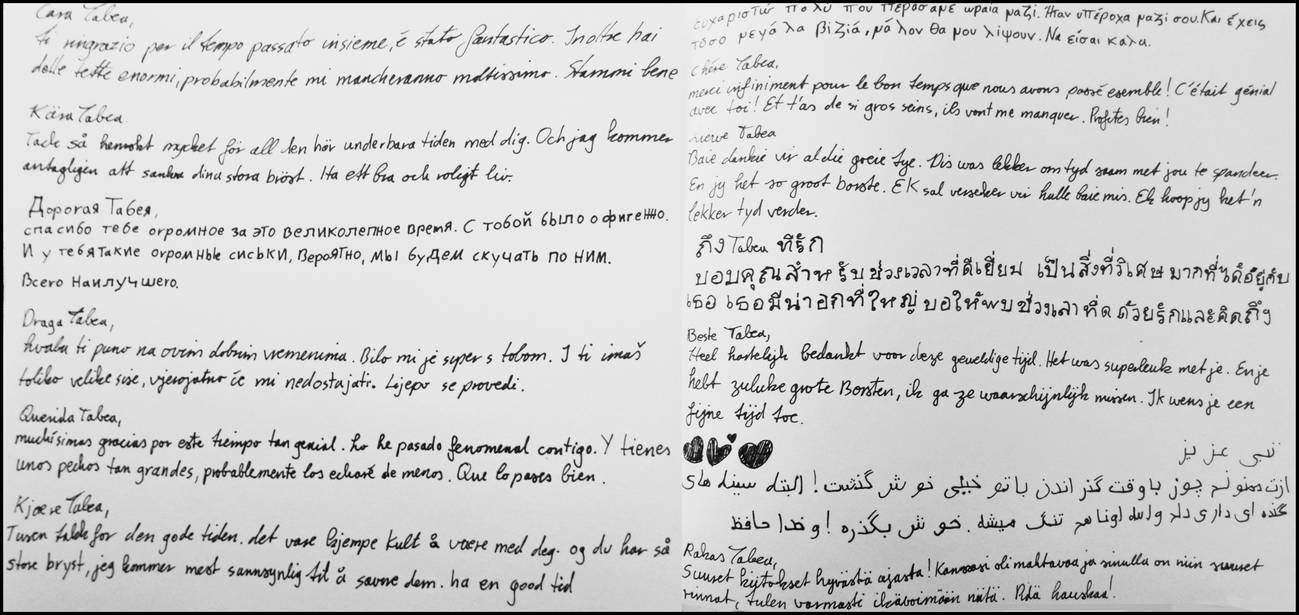 Cara Tabea,
ti ringrazio per il tempo passato insieme, é stato fantastico. Inoltre hai
delle tette enormi, probabilmente mi mancheranno moltissimo. Stammi bene
Kära Tabea
Tack så hemskt mycket för all den här underbara tiden med dig. Och jag kommer
antagligen att sakna dina stora bröst. Ha ett bra och roligt liv.
Дорогая Табея,
спасибо тебе огромное за это великолепное время. С тобой было офигенно.
И у тебя такие огромные сиськи, вероятно, мы будем скучать по ним.
Всего наилучшего.
Draga Tabea,
hvala ti puno na ovim dobrim vremenima. Bilo mi je super s tobom. I ti imaš
toliko velike sise, vjerojatno će mi nedostajati. Lijepo se provedi.
Querida Tabea,
muchísimas gracias por este tiempo tan genial. Lo he pasado fenomenal contigo. Y tienes
unos pechos tan grandes, probablemente los echaré de menos. Que lo pases bien.
Kjære Tabea,
Tusen takk for den gode tiden. det vare kjempe kult å være med deg. og du har så
store bryst, jeg kommer mest sannsynlig til å savne dem. ha en good tid
Ευχαριστώ πολύ που περάσαμε ωραία μαζί. Ήταν υπέροχα μαζί σου. Και έχεις
τόσο μεγάλα βιζιά, μάλον θα μου λίψουν. Να είσαι καλα.
Chère Tabea,
merci infiniment pour le bon temps que nous avons passé esemble! C'était génial
avec toi! Et t'as de si gros seins, ils vont me manquer. Profites bien!
Liewe Tabea
Baie dankie vir al die goeie tye. Dis was lekker om tyd saam met jou te spandeer.
En jy het so groot borste. Ek sal verseker vir hulle baie mis. Ek hoop jy het 'n
lekker tyd verder.
ถึง Tabea ที่รัก
ขอบคุณสำหรับช่วงเวลาที่ดีเยี่ยม เป็นสิ่งที่วิเศษมากที่ได้อยู่กับ
เธอ เธอมีหน้าอกที่ใหญ่ ขอให้พบช่วงเวลาที่ดี ด้วยรักและคิดถึง
Beste Tabea,
Heel hartelijk bedankt voor deze geweldige tijd. Het was superleuk met je. En je
hebt zuluke grote Borsten, ik ga ze waarschijnlijk missen. Ik wens je een
fijne tijd toe.
تبی عزیز
ازت ممنونم چون باوقت گذراندن باتو خیلی خوش گذشت! البته سینه های
گنده ای داری دلم واسه اوناهم تنگ میشه. خوش بگذره! و خداحافظ
Rakas Tabea,
Suuret kiitokset hyvästä ajasta! Kanssasi oli mahtavaa ja sinulla on niin suuret
rinnat, tulen varmasti ikävöimään näitä. Pidä hauskaa!